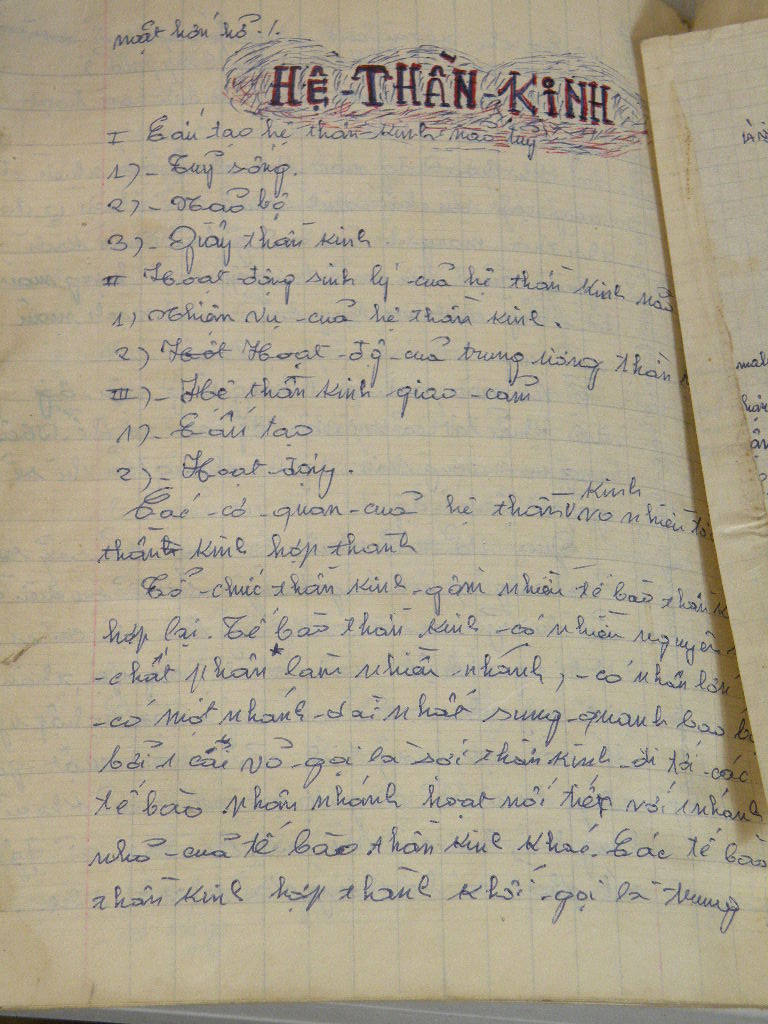 mật hơn hổ ./.
HỆ-THẦN-KINH
I Cấu tạo hệ thần-kinh não tuỷ
1)- Tuỷ sống.
2)- Não bộ
3)- Giây thần kinh
II Hoạt-động sinh lý-của hệ thần kinh não
1) Nhiệm vụ-của hệ thần kinh.
2) Hoạt-độ-của trung ương thần
III)- Hệ thần kinh giao-cảm
1)- Cấu tạo
2)- Hoạt-động.
Kinh
Các-cơ-quan-của hệ thần do nhiều tế
thần kinh hợp thành
Tổ-chức thần kinh-gồm nhiều tế bào thần k
hợp lại. Tế bào thần kinh-có nhiều nguyên
-chất phân * làm nhiều-nhánh,-có nhân lớn
-có một nhánh-dài nhất sung-quanh bao b
bởi 1 cái vỏ-gọi là sợi thần kinh-đi tới-các
tế bào phân nhánh hoạt nối tiếp với nhánh
nhỏ-của tế bào thần kinh khác. Các tế bào
thần kinh hợp thành khối-gọi là trung